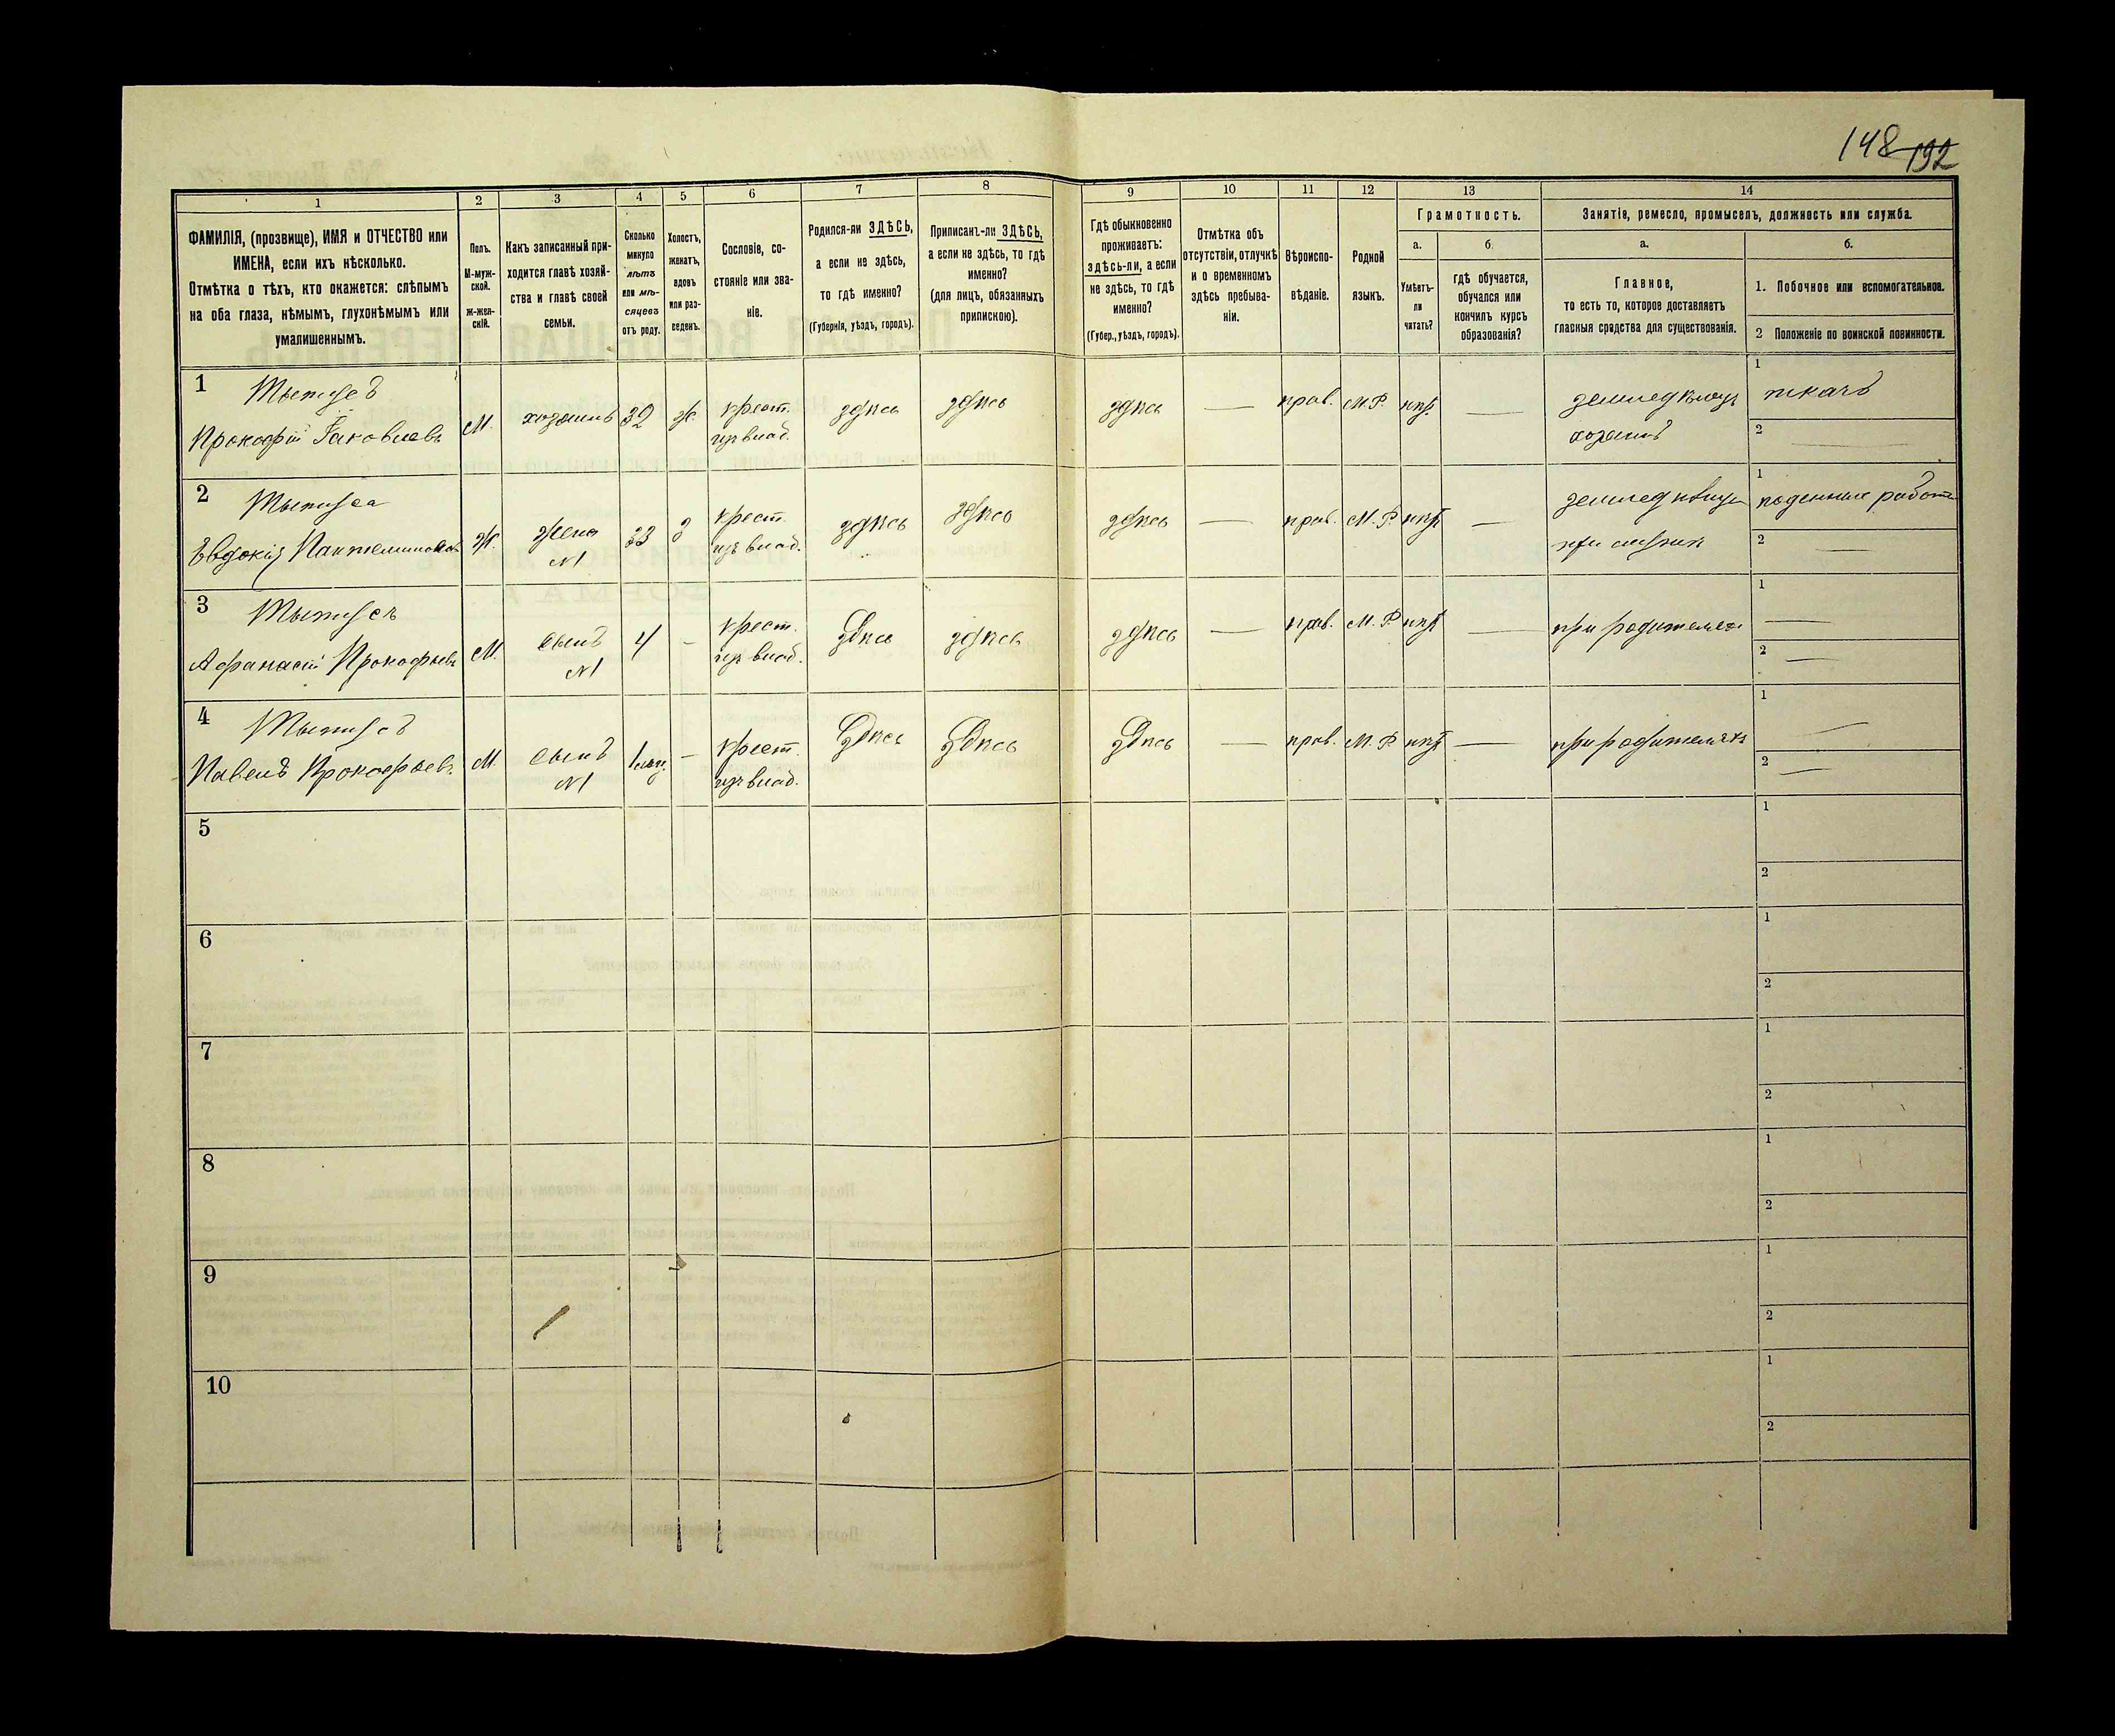 148 192
1 2 3 4 5 6 7 8 9 10 11 12 13 14
ФАМИЛІЯ, (прозвище), ИМЯ и ОТЧЕСТВО или
ИМЕНА, если ихъ нѣсколько.
Отмѣтка о тѣхъ, кто окажется: слѣпымъ
на оба глаза, нѣмымъ, глухонѣмымъ или
умалишеннымъ.
Полъ.
М-муж-
ской.
ж-жен-
скій.
Какъ записанный при-
ходится главѣ хозяй-
ства и главѣ своей
семьи.
Сколько
минуло
лѣтъ
или мѣ-
сяцевъ
отъ роду.
Холостъ,
женатъ,
вдовъ
или раз-
веденъ.
Сословіе, со-
стояніе или зва-
ніе.
Родился-ли ЗДѢСЬ,
а если не здѣсь,
то гдѣ именно?
(Губернія, уѣздъ, городъ).
Приписанъ-ли ЗДѢСЬ,
а если не здѣсь, то гдѣ
именно?
(для лицъ, обязанныхъ
припискою).
Гдѣ обыкновенно
проживаетъ:
здѣсь-ли, а если
не здѣсь, то гдѣ
именно?
(Губер., уѣздъ, городъ).
Отмѣтка объ
отсутствіи, отлучкѣ
и о временномъ
здѣсь пребыва-
ніи.
Вѣроиспо-
вѣданіе.
Родной
языкъ.
Грамотность.
а. б
Умѣетъ-
ли
читать?
гдѣ обучается,
обучался или
кончилъ курсъ
образованія?
Занятіе, ремесло, промыселъ, должность или служба.
а. б.
Главное,
то есть то, которое доставляетъ
главныя средства для существованія.
1. Побочное или вспомогательное.
2 Положеніе по воинской повинности.
1
Прокофій Іаковлевъ М. хозяинъ 32 ж. крест. здѣсь здѣсь здѣсь — прав. М.Р. — 1 ткачъ
хозяинъ 2 —
2
Евдокія ж. жена 33 з крест. здѣсь здѣсь здѣсь — прав. М.Р. — 1 поденные работы
№1 при мужѣ 2 —
3
Афанасій Прокофьевъ М. сынъ 4 – крест. здѣсь здѣсь здѣсь — прав. М.Р. — при родителяхъ 1 —
№1 2 —
4
Павелъ Прокофьевъ М. сынъ 1 мѣс. – крест. здѣсь здѣсь здѣсь — прав. М.Р. — при родителяхъ 1 —
№1 2 —
5 1
2
6 1
2
7 1
2
8 1
2
9 1
2
10 1
2